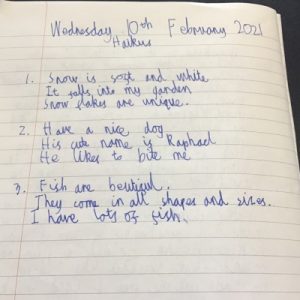 Wednesday 10th February 2021
Haikus
1. Snow is soft and white
It falls into my garden
Snow flakes are unique.
2. Have a nice dog
His cute name is Raphael
He likes to bite me
3. Fish are beutiful.
They come in all shapes and sizes.
I have lots of fish.